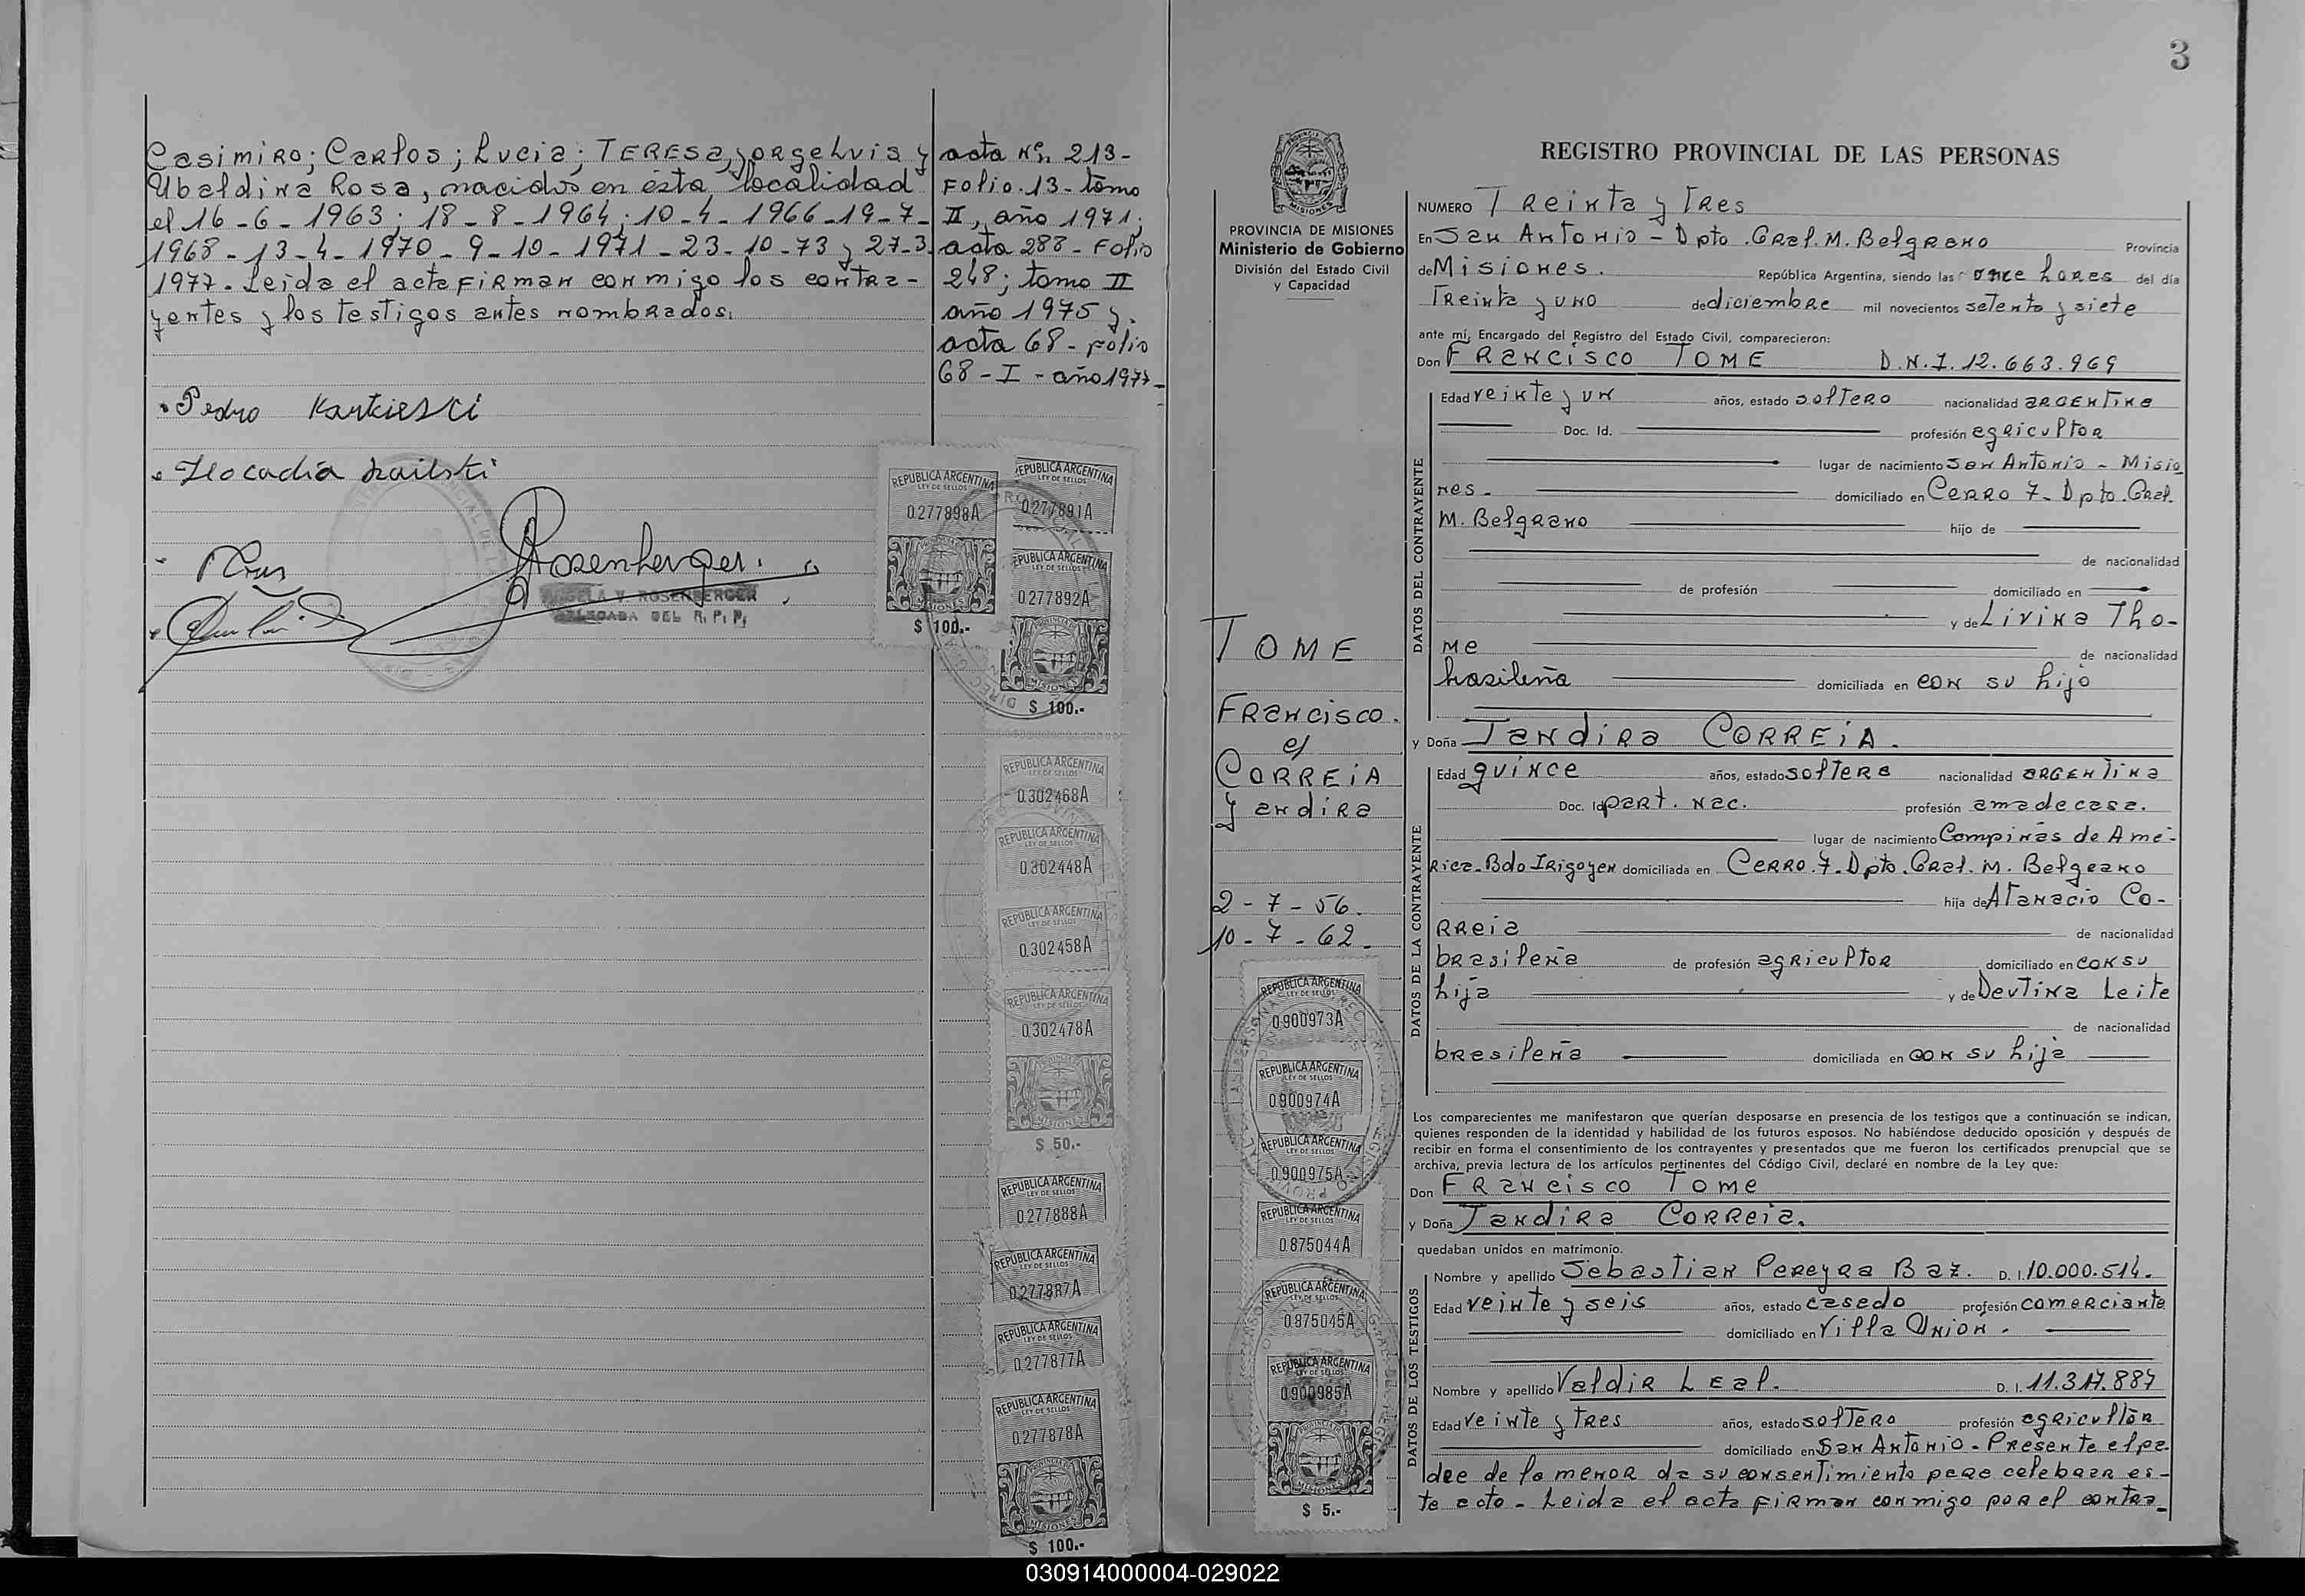 Casimiro; Carlos; Lucia; TERESA, Jorge Luis y
Ubaldina Rosa, nacidos en ésta localidad
el 16-6-1963; 18-8-1964; 10-4-1966-19-7-
1968-13-4-1970-9-10-1971-23-10-73 y 27-3-
1977. Leida el acta firman conmigo los contra-
yentes y los testigos antes nombrados.
Pedro
ANGELA V. ROSENBERGER
DELEGADA DEL R. P. P.
acta Nº. 213-
Folio. 13- tomo
II, año 1971;
acta 288- Folio
248; tomo II
año 1975 y.
acta 68- folio
68-I-año 1977-
REPUBLICA ARGENTINA
LEY DE SELLOS
0277898A
MISIONES
$ 100.-
REPUBLICA ARGENTINA
LEY DE SELLOS
0277891A
REPUBLICA ARGENTINA
LEY DE SELLOS
0277892A
MISIONES
$ 100.-
REPUBLICA ARGENTINA
LEY DE SELLOS
0302468A
REPUBLICA ARGENTINA
LEY DE SELLOS
0302448A
REPUBLICA ARGENTINA
LEY DE SELLOS
0302458A
REPUBLICA ARGENTINA
LEY DE SELLOS
0302478A
MISIONES
$ 50.-
REPUBLICA ARGENTINA
LEY DE SELLOS
0277888A
REPUBLICA ARGENTINA
LEY DE SELLOS
0277887A
REPUBLICA ARGENTINA
LEY DE SELLOS
0277877A
REPUBLICA ARGENTINA
LEY DE SELLOS
0277878A
MISIONES
$ 100.-
3
PROVINCIA DE MISIONES
Ministerio de Gobierno
División del Estado Civil
y Capacidad
TOME
Francisco.
c/
CORREIA
Jandira
2-7-56.
10-7-62.
REPUBLICA ARGENTINA
LEY DE SELLOS
0900973A
REPUBLICA ARGENTINA
LEY DE SELLOS
0900974A
REPUBLICA ARGENTINA
LEY DE SELLOS
0900975A
REPUBLICA ARGENTINA
LEY DE SELLOS
0875044A
REPUBLICA ARGENTINA
LEY DE SELLOS
0875045A
REPUBLICA ARGENTINA
LEY DE SELLOS
0900985A
MISIONES
$ 5.-
REGISTRO PROVINCIAL DE LAS PERSONAS
NUMERO Treinta y Tres
En San Antonio - Dpto. Gral. M. Belgrano Provincia
de Misiones. República Argentina, siendo las once horas del día
Treinta y uno de diciembre mil novecientos setenta y siete
ante mí, Encargado del Registro del Estado Civil, comparecieron:
Don Francisco TOME D.N.I. 12.663.969
DATOS DEL CONTRAYENTE
Edad veinte y un años, estado soltero nacionalidad argentina
Doc. Id. profesión agricultor
lugar de nacimiento San Antonio - Misio
nes- domiciliado en Cerro 7- Dpto. Gral.
M. Belgrano hijo de
de nacionalidad
de profesión domiciliado en
y de Livina Tho-
me de nacionalidad
brasileña domiciliada en con su hijo
y Doña Jandira CORREIA.
DATOS DE LA CONTRAYENTE
Edad quince años, estado soltera nacionalidad argentina
Doc. Id part. nac. profesión ama de casa.
lugar de nacimiento Campinas de Amé-
rica- Bdo Irigoyen domiciliada en Cerro. 7- Dpto. Gral. M. Belgrano
hija de Atanacio Co-
rreia de nacionalidad
brasileña de profesión agricultor domiciliado en con su
hija y de Deutina Leite
de nacionalidad
brasileña domiciliada en con su hija
Los comparecientes me manifestaron que querían desposarse en presencia de los testigos que a continuación se indican,
quienes responden de la identidad y habilidad de los futuros esposos. No habiéndose deducido oposición y después de
recibir en forma el consentimiento de los contrayentes y presentados que me fueron los certificados prenupcial que se
archiva, previa lectura de los artículos pertinentes del Código Civil, declaré en nombre de la Ley que:
Don Francisco Tome
y Doña Jandira Correia.
quedaban unidos en matrimonio.
DATOS DE LOS TESTIGOS
Nombre y apellido Sebastian Pereyra Baz. D. I. 10.000.514.
Edad veinte y seis años, estado casado profesión comerciante
domiciliado en Villa Union.
Nombre y apellido Valdir Leal. D. I. 11.317.887
Edad veinte y tres años, estado soltero profesión agricultor
domiciliado en San Antonio- Presente el pa-
dre de la menor da su consentimiento para celebrar es-
te acto- Leida el acta firman conmigo por el contra-
030914000004-029022